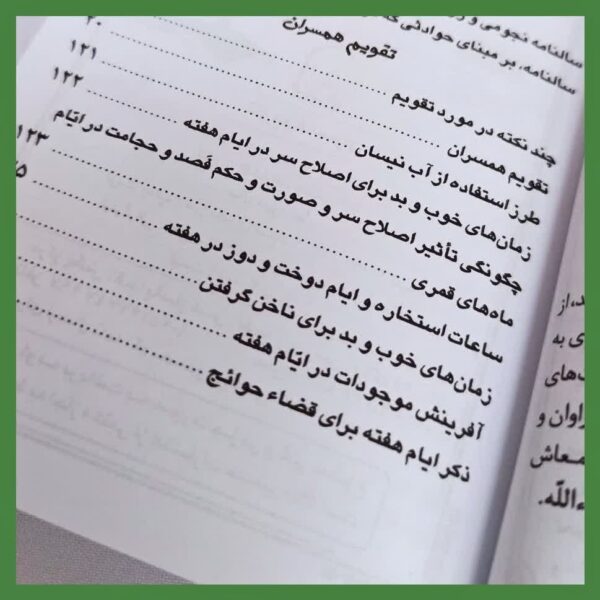 سالنامه نجومی و
سالنامه، بر مبنای حوادثی که
تقویم همسران
چند نکته در مورد تقویم ۲۰
تقویم همسران ۱۲۱
طرز استفاده از آب نیسان ۱۲۲
زمان‌های خوب و بد برای اصلاح سر در ایام هفته
چگونگی تأثیر اصلاح سر و صورت و حکم فَصد و حجامت در ایّام
ماه‌های قمری ۱۲۳
ساعات استخاره و ایام دوخت و دوز در هفته ۲۵
زمان‌های خوب و بد برای ناخن گرفتن
آفرینش موجودات در ایّام هفته
ذکر ایام هفته برای قضاء حوائج
د، از
ی به
ت‌های
راوان و
معاش
ءاللّه.